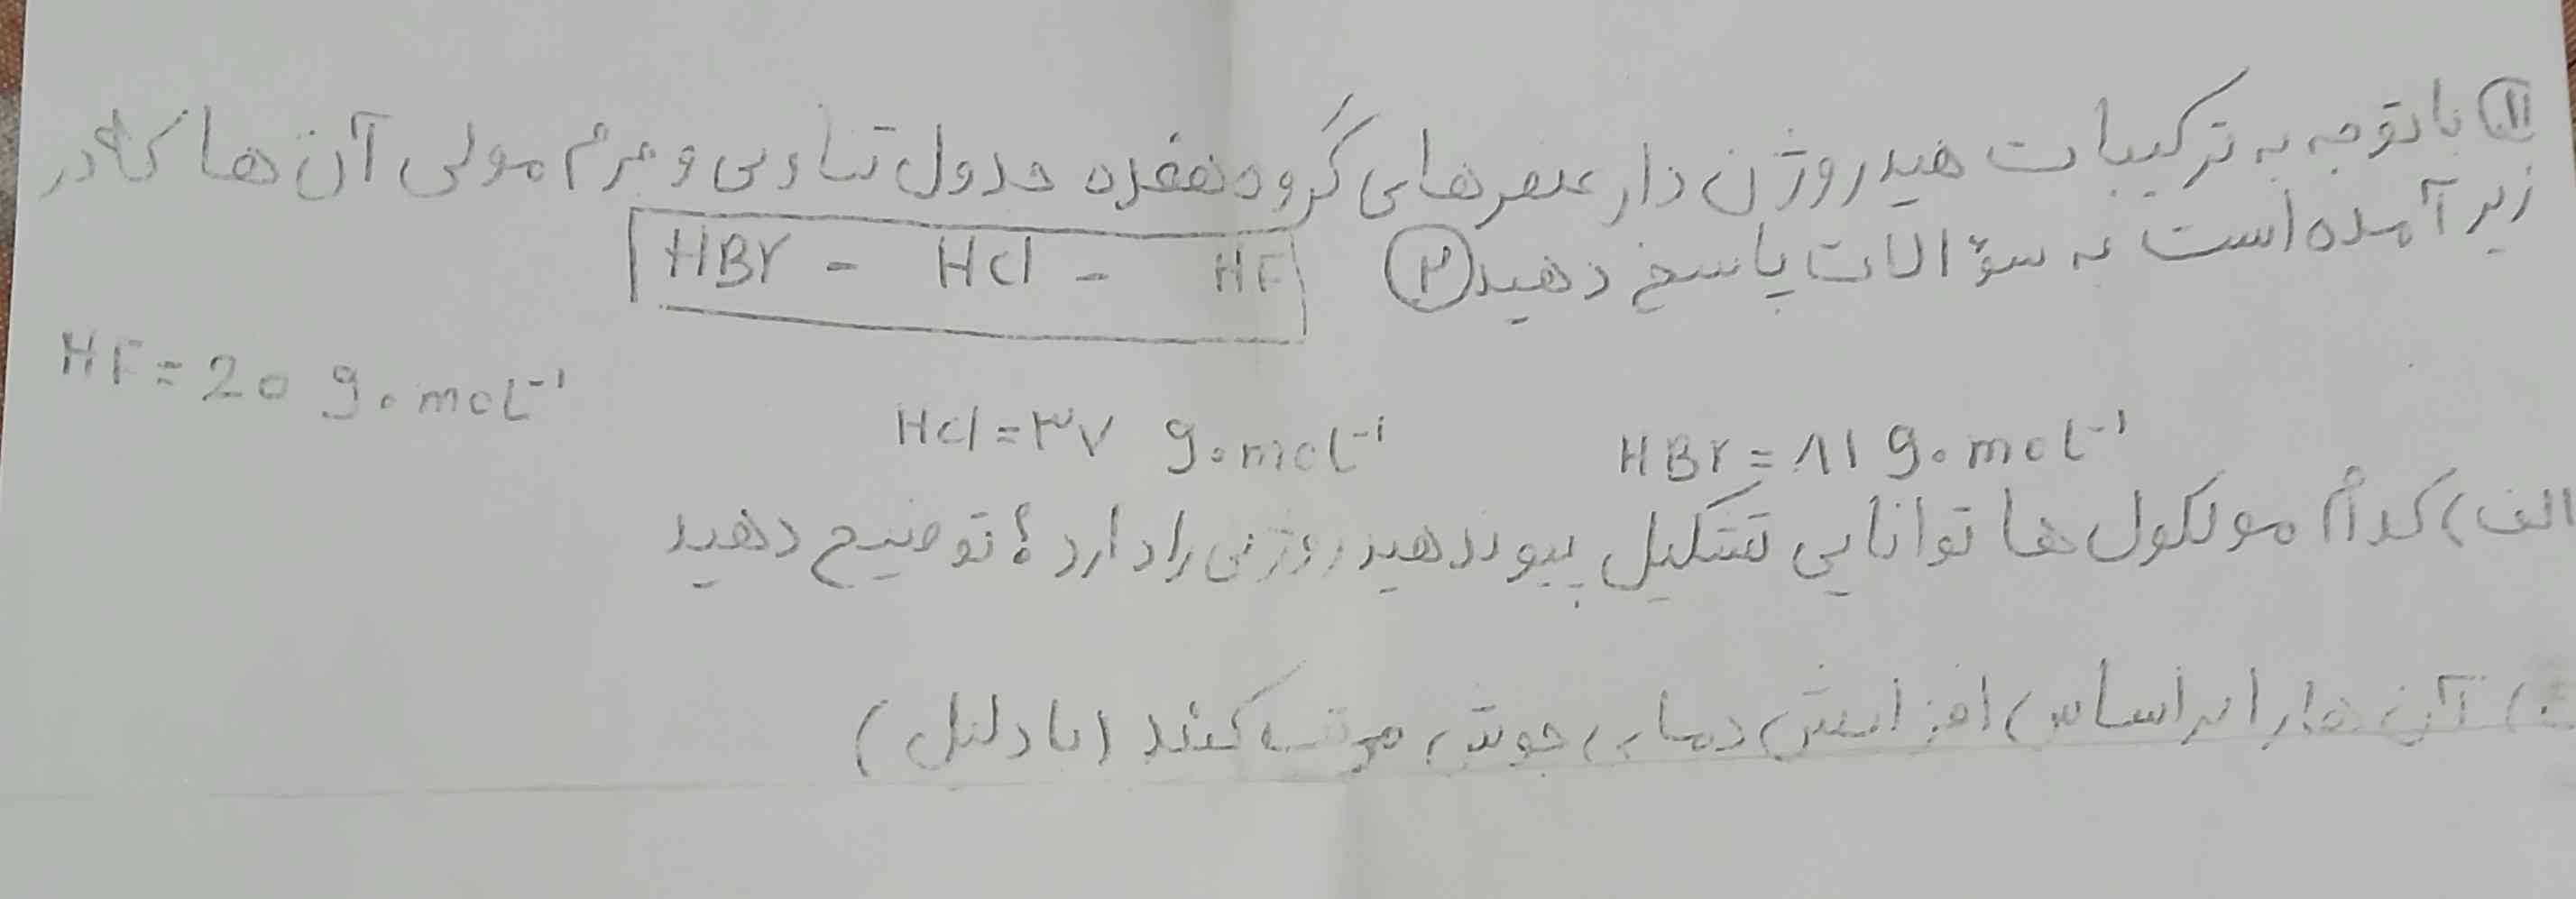 ۱۱ با توجه به ترکیبات هیدروژن دار عنصرهای گروه هفده جدول تناوبی و جرم مولی آن ها که در
زیر آمده است به سؤالات پاسخ دهید ۲
HBr - HCl - HF
HF = 20 g.mol⁻¹
HCl = ۳۷ g.mol⁻¹ HBr = ۸۱ g.mol⁻¹
الف) کدام مولکول ها توانایی تشکیل پیوند هیدروژنی را دارد؟ توضیح دهید
ب) آن ها را براساس افزایش دمای جوش مرتب کنند (با دلیل)